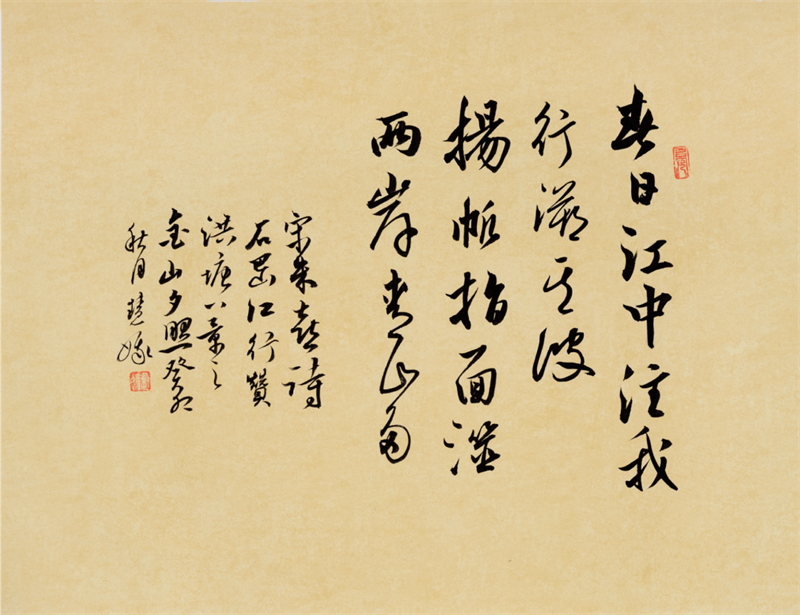 春日江中注我
行溯其波
揚帆指面澨
兩岸青山多
宋朱熹詩
石嵒江行贊
洪塘八景之
金山夕照癸卯
秋月慧